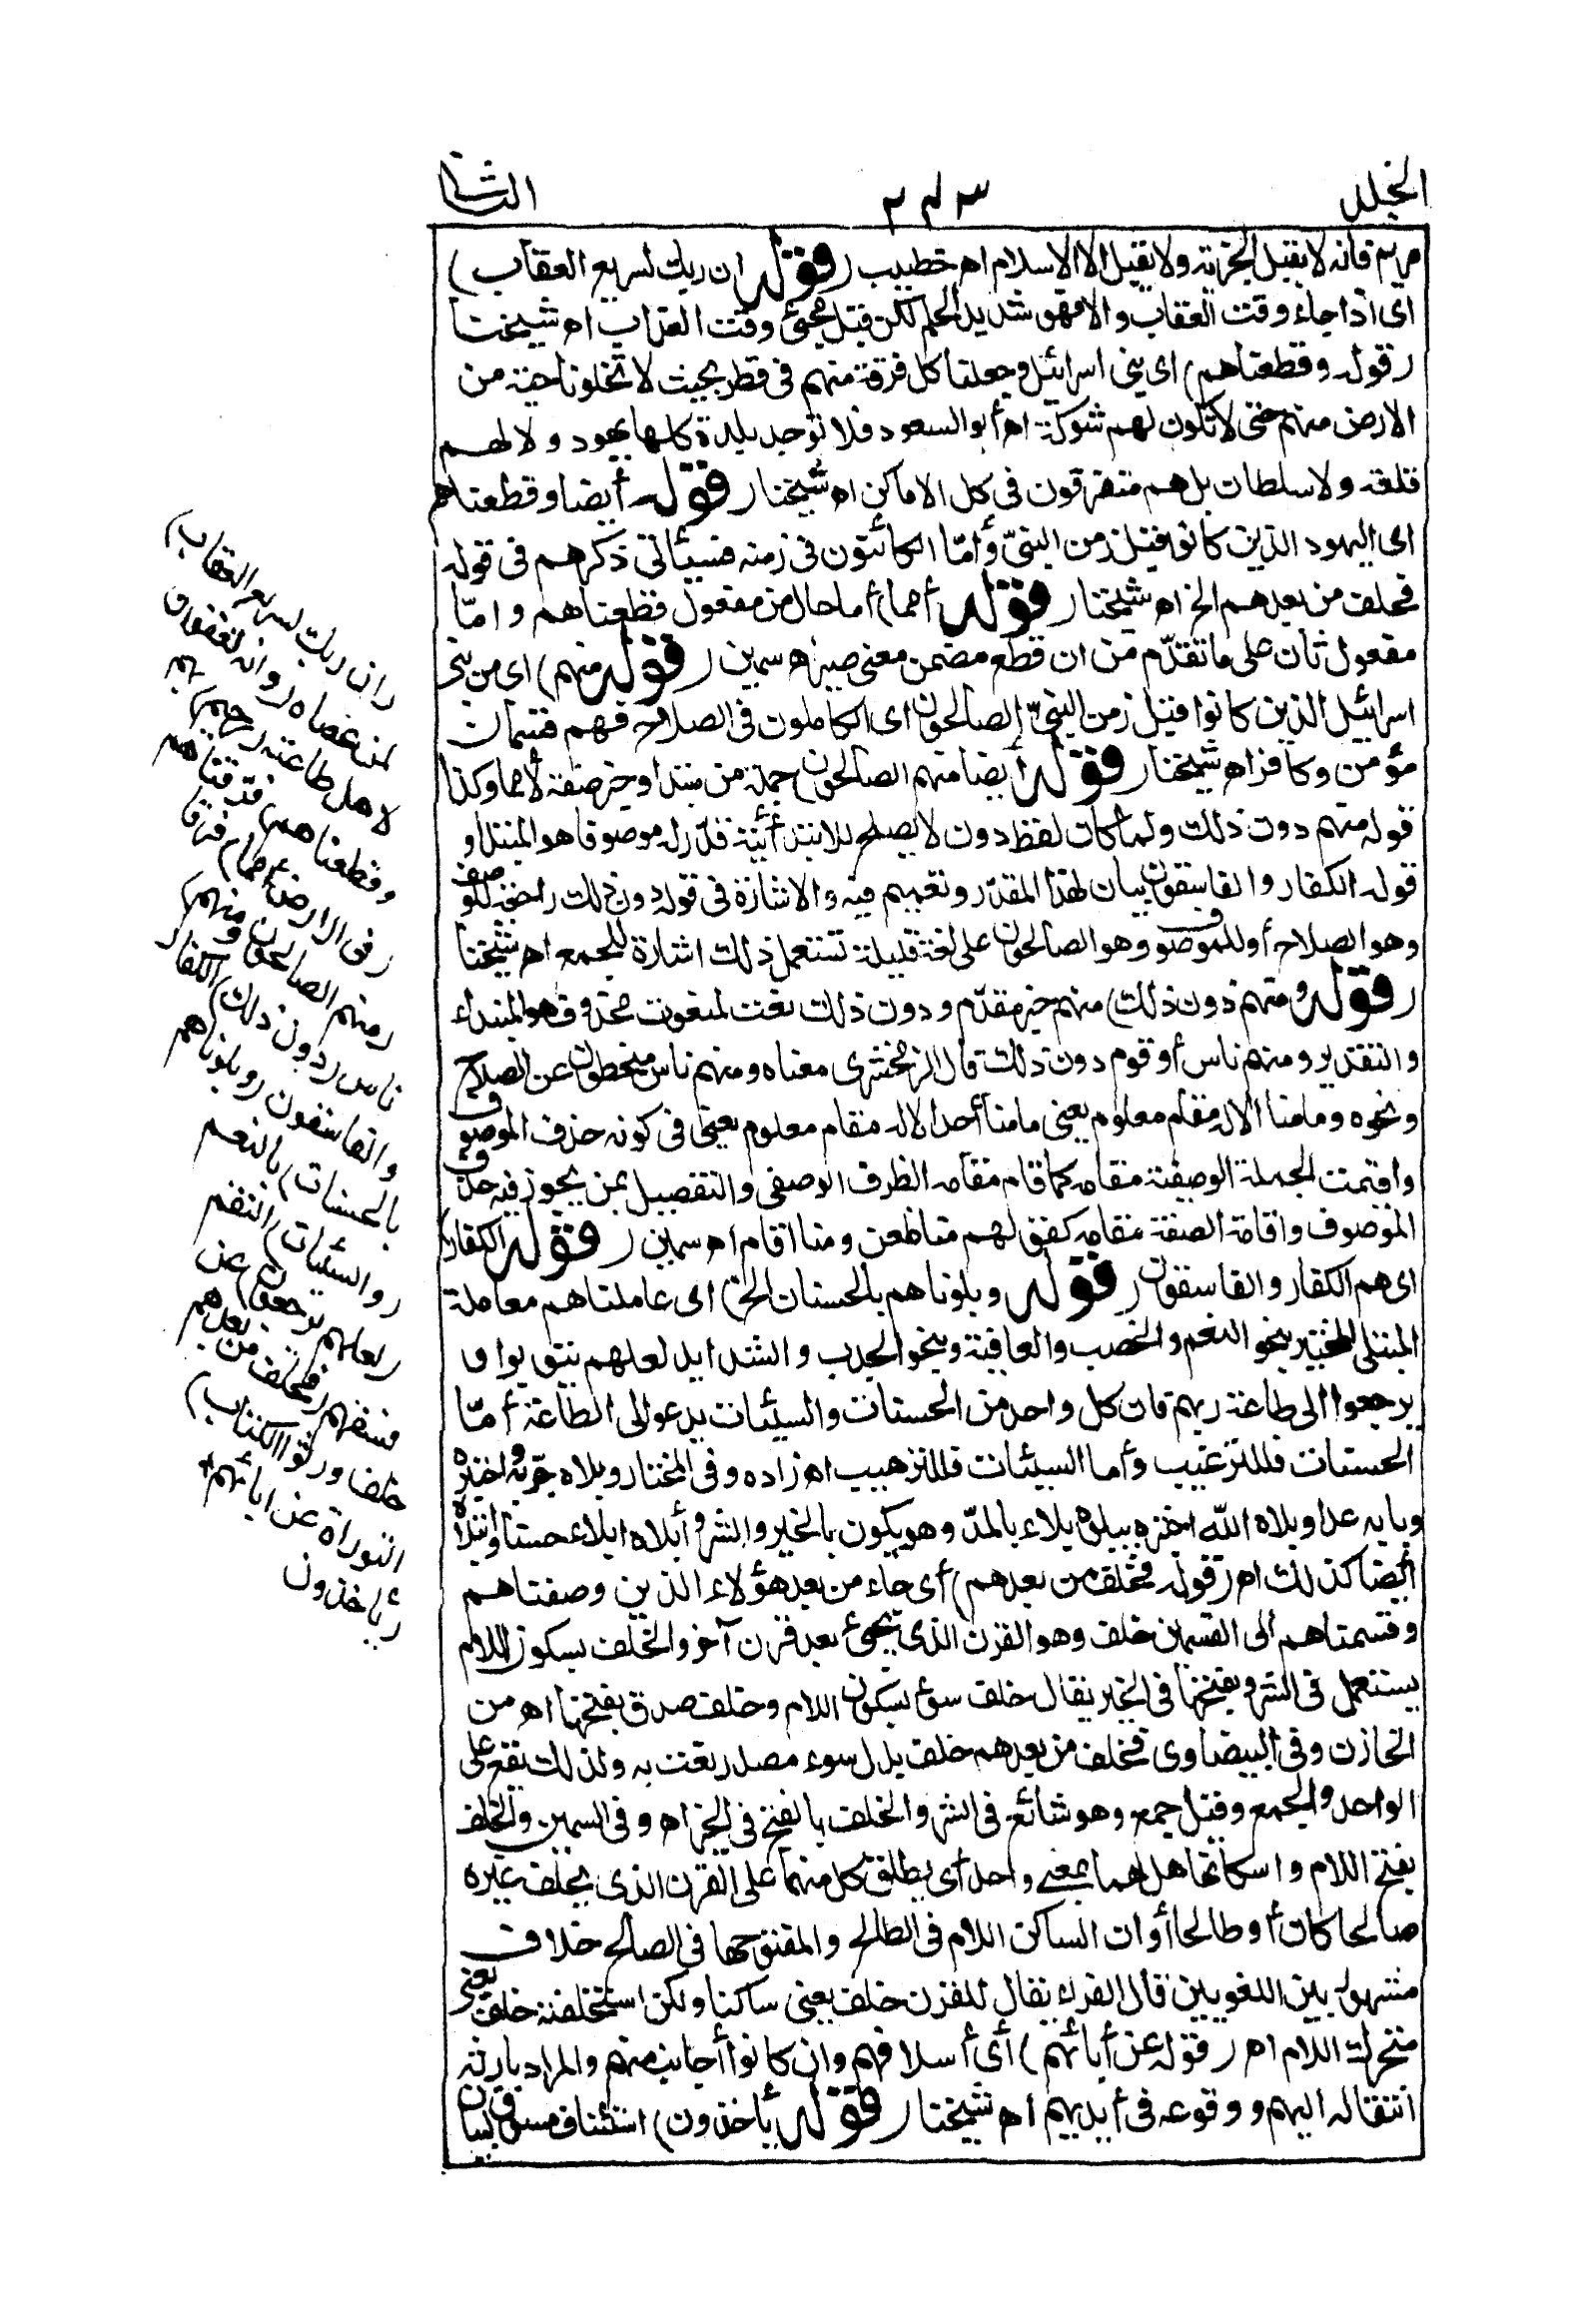 المجلد ٢٤٣ الثاني
مريم فانه لا يقبل الجزية ولا يقبل الا الاسلام اه خطيب (قوله ان ربك لسريع العقاب)
اى اذا جاء وقت العقاب والا فهو شديد الحلم لكن قبل مجئ وقت العذاب اه شيخنا
(قوله وقطعناهم) اى بنى اسرائيل وجعلنا كل فرقة منهم فى قطر بحيث لا تخلو ناحية من
الارض منهم حتى لا تكون لهم شوكة اه أبو السعود فلا توجد بلدة كلها يهود ولا لهم
قلعة ولا سلطان بل هم متفرقون فى كل الاماكن اه شيخنا (قوله أيضا وقطعناهم
اى اليهود الذين كانوا قبل زمن النبىّ وأمّا الكائنون فى زمنه فسيأتى ذكرهم فى قوله
فخلف من بعدهم الخ اه شيخنا (قوله أمما) أما حال من مفعول قطعناهم وامّا
مفعول ثان على ما تقدّم من ان قطع مضمن معنى صير اه سمين (قوله منهم) اى من بنى
اسرائيل الذين كانوا قبل زمن النبىّ الصالحون اى الكاملون فى الصلاح فهم قسمان
مؤمن وكافر اه شيخنا (قوله أيضا منهم الصالحون) جملة من مبتدا وخبر صفة لأمما وكذا
قوله منهم دون ذلك ولما كان لفظ دون لا يصلح للابتدائية قدّر له موصوفا هو المبتدا و
قوله الكفار والفاسقون بيان لهذا المقدّر وتعميم فيه والاشارة فى قوله دون ذلك راجعة للوصف
وهو الصلاح أو للموصوف وهو الصالحون على لغة قليلة تستعمل ذلك اشارة للجمع اه شيخنا
(قوله ومنهم دون ذلك) منهم خبر مقدّم ودون ذلك نعت لمنعوت محذوف هو المبتداء
والتقدير ومنهم ناس أو قوم دون ذلك قال الزمخشرى معناه ومنهم ناس منحطون عن الصلاح
ونحوه وما منا الا له مقام معلوم يعنى ما منا أحد الا له مقام معلوم يعنى فى كونه حذف الموصوف
واقيمت الجملة الوصفية مقامه كما قام مقامه الظرف الوصفى والتفصيل بمن يجوز فيه حذف
الموصوف واقامة الصفة مقامه كقولهم منا ظعن ومنا اقام اه سمين (قوله الكفار)
اى هم الكفار والفاسقون (قوله وبلوناهم بالحسنات الخ) اى عاملناهم معاملة
المبتلى المختبر بنحو النعم والخصب والعافية وبنحو الجدب والشدايد لعلهم يتوبوا و
يرجعوا الى طاعة ربهم فان كل واحد من الحسنات والسيئات يدعو الى الطاعة أمّا
الحسنات فللترغيب وأما السيئات فللترهيب اه زاده وفى المختار وبلاه جرّبه واختبره
وبابه عدا وبلاه الله اختبره يبلوه بلاء بالمدّ وهو يكون بالخير والشر وأبلاه ابلاء حسنا وابتلاه
أيضا كذلك اه (قوله فخلف من بعدهم) أى جاء من بعد هؤلاء الذين وصفناهم
وقسمناهم الى القسمين خلف وهو القرن الذى يجئ بعد قرن آخر والخلف بسكون اللام
يستعمل فى الشر وبفتحها فى الخير يقال خلف سوء بسكون اللام وخلف صدق بفتحها اه من
الخازن وفى البيضاوى فخلف من بعدهم خلف بدل سوء مصدر نعت به ولذلك يقع على
الواحد والجمع وقيل جمع وهو شائع فى الشر والخلف بالفتح فى الخير اه وفى السمين والخلف
بفتح اللام واسكانها هل هما بمعنى واحد أى يطلق كل منهما على القرن الذى يخلف غيره
صالحا كان أو طالحا أو ان الساكن اللام فى الطالح والمفتوحها فى الصالح خلاف
مشهور بين اللغويين قال الفراء يقال للقرن خلف يعنى ساكنا ولمن استخلفته خلف يعنى
متحرك اللام اه (قوله عن أبائهم) أى أسلافهم وان كانوا أجانب منهم والمراد بارثه
انتقاله اليهم ووقوعه فى أيديهم اه شيخنا (قوله يأخذون) استئناف مسوق لبيان
(ان ربك لسريع العقاب)
لمن عصاه (وانه لغفور)
لاهل طاعته (رحيم) بهم
وقطعناهم) فرّقناهم
(فى الارض أمما) فرقا
(منهم الصالحون ومنهم)
ناس (دون ذلك) الكفار
والفاسقون (وبلوناهم
بالحسنات) بالنعم
(والسيئات) النقم
(لعلهم يرجعون) عن
فسقهم (فخلف من بعدهم
خلف ورثوا الكتاب)
التوراة عن ابائهم
(يأخذون